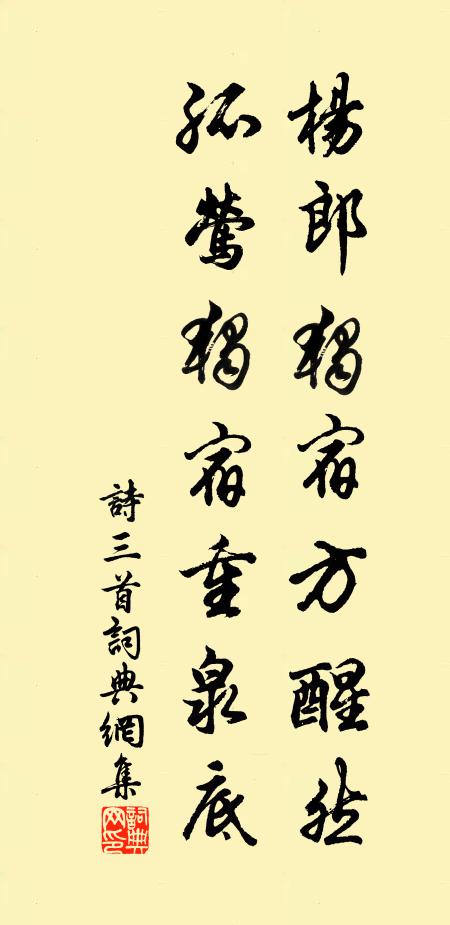 楊郎獨宿方醒然
孤鶯獨宿重泉底
詩三首詞典網集
詞典网印